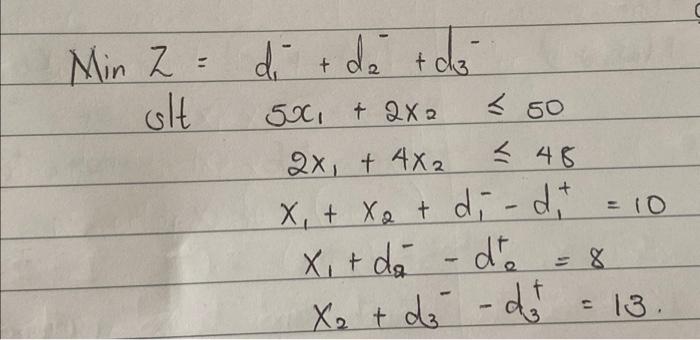 Min Z = d₁⁻ + d₂⁻ + d₃⁻
s/t 5x₁ + 2x₂ ≤ 50
2x₁ + 4x₂ ≤ 48
x₁ + x₂ + d₁⁻ - d₁⁺ = 10
x₁ + d₂⁻ - d₂⁺ = 8
x₂ + d₃⁻ - d₃⁺ = 13.